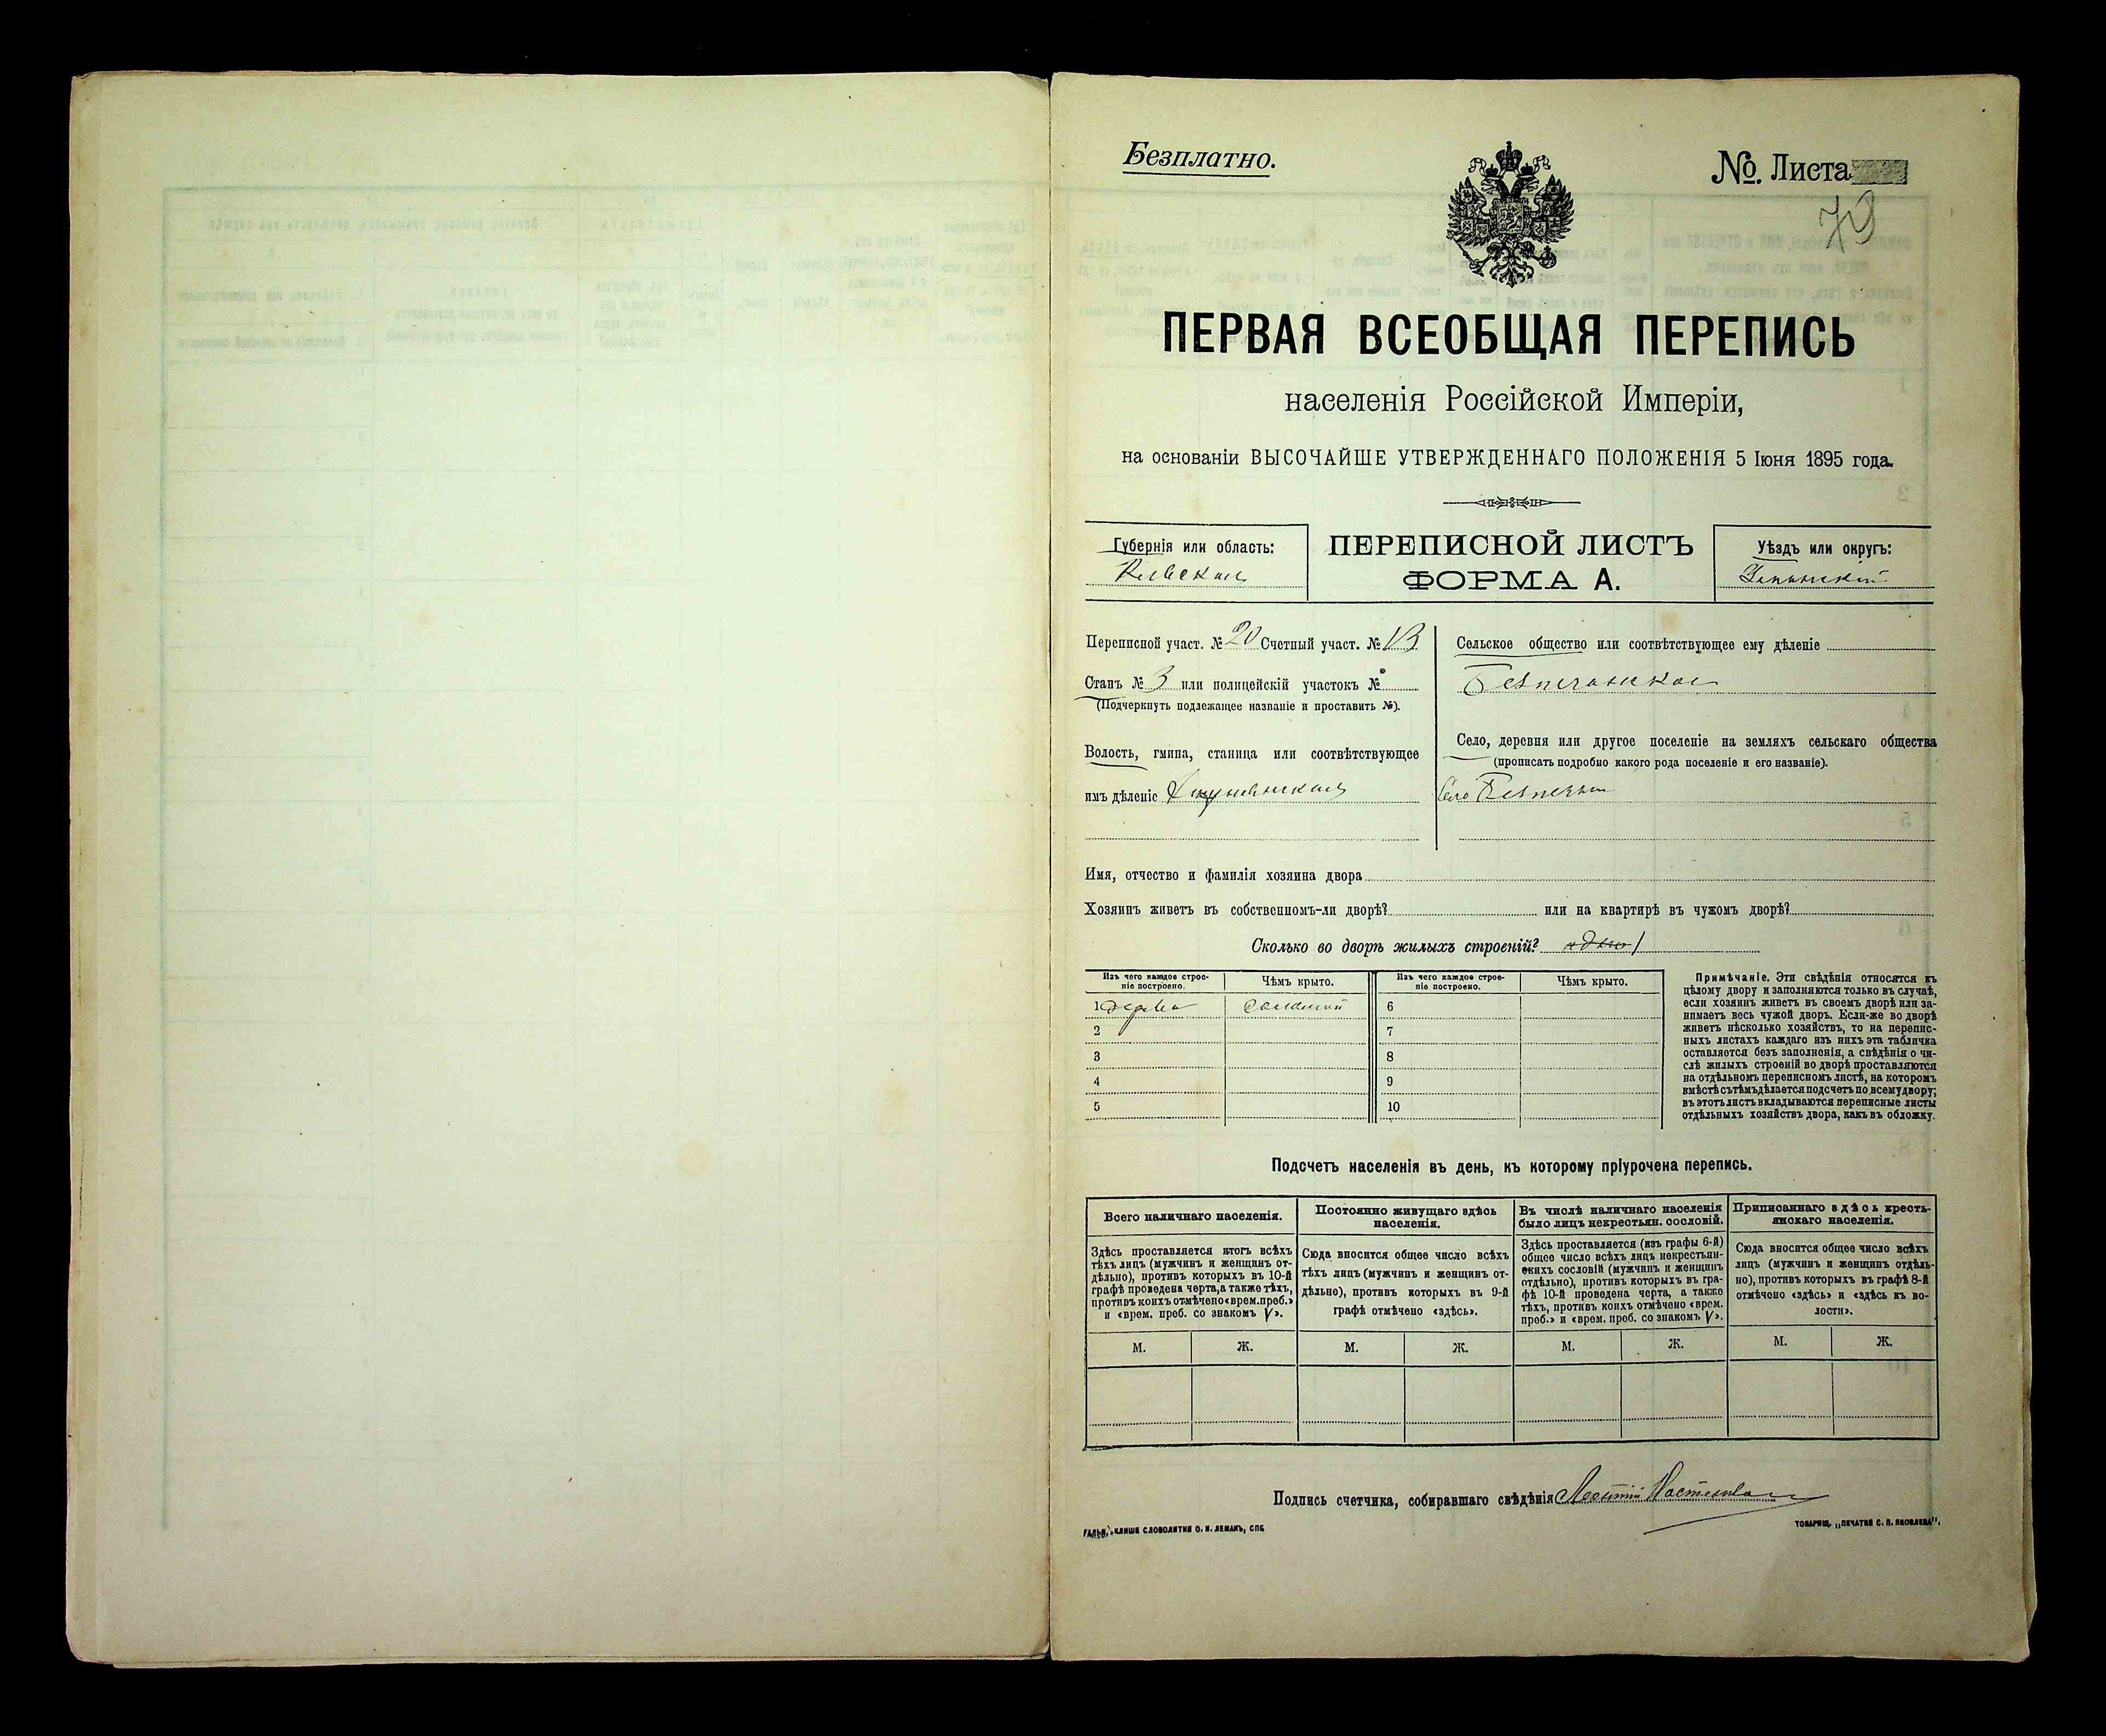 Безплатно.
№ Листа
79
ПЕРВАЯ ВСЕОБЩАЯ ПЕРЕПИСЬ
населенія Россійской Имперіи,
на основаніи ВЫСОЧАЙШЕ УТВЕРЖДЕННАГО ПОЛОЖЕНІЯ 5 Іюня 1895 года.
Губернія или область:
Кіевская
ПЕРЕПИСНОЙ ЛИСТЪ
ФОРМА А.
Уѣздъ или округъ:
Переписной участ. № 20 Счетный участ. № 13
Станъ № 3 или полицейскій участокъ №
(Подчеркнуть подлежащее названіе и проставить №).
Волость, гмина, станица или соотвѣтствующее
имъ дѣленіе
Сельское общество или соотвѣтствующее ему дѣленіе
Безпечанское
Село, деревня или другое поселеніе на земляхъ сельскаго общества
(прописать подробно какого рода поселеніе и его названіе).
Село Безпечны
Имя, отчество и фамилія хозяина двора
Хозяинъ живетъ въ собственномъ-ли дворѣ? или на квартирѣ въ чужомъ дворѣ?
Сколько во дворѣ жилыхъ строеній? одно 1
Изъ чего каждое строе-
ніе построено.
Чѣмъ крыто.
Изъ чего каждое строе-
ніе построено.
Чѣмъ крыто.
1 дерева соломой 6
2 7
3 8
4 9
5 10
Примѣчаніе. Эти свѣдѣнія относятся къ
цѣлому двору и заполняются только въ случаѣ,
если хозяинъ живетъ въ своемъ дворѣ или за-
нимаетъ весь чужой дворъ. Если-же во дворѣ
живетъ нѣсколько хозяйствъ, то на перепис-
ныхъ листахъ каждаго изъ нихъ эта табличка
оставляется безъ заполненія, а свѣдѣнія о чи-
слѣ жилыхъ строеній во дворѣ проставляются
на отдѣльномъ переписномъ листѣ, на которомъ
вмѣстѣ съ тѣмъ дѣлается подсчетъ по всему двору;
въ этотъ листъ вкладываются переписные листы
отдѣльныхъ хозяйствъ двора, какъ въ обложку.
Подсчетъ населенія въ день, къ которому пріурочена перепись.
Всего наличнаго населенія.
Здѣсь проставляется итогъ всѣхъ
тѣхъ лицъ (мужчинъ и женщинъ от-
дѣльно), противъ которыхъ въ 10-й
графѣ проведена черта, а также тѣхъ,
противъ коихъ отмѣчено «врем. преб.»
и «врем. преб. со знакомъ V».
М. Ж.
Постоянно живущаго здѣсь
населенія.
Сюда вносится общее число всѣхъ
тѣхъ лицъ (мужчинъ и женщинъ от-
дѣльно), противъ которыхъ въ 9-й
графѣ отмѣчено «здѣсь».
М. Ж.
Въ числѣ наличнаго населенія
было лицъ некрестьян. сословій.
Здѣсь проставляется (изъ графы 6-й)
общее число всѣхъ лицъ некрестьян-
скихъ сословій (мужчинъ и женщинъ
отдѣльно), противъ которыхъ въ гра-
фѣ 10-й проведена черта, а также
тѣхъ, противъ коихъ отмѣчено «врем.
преб.» и «врем. преб. со знакомъ V».
М. Ж.
Приписаннаго здѣсь кресть-
янскаго населенія.
Сюда вносится общее число всѣхъ
лицъ (мужчинъ и женщинъ отдѣль-
но), противъ которыхъ въ графѣ 8-й
отмѣчено «здѣсь» и «здѣсь къ во-
лости».
М. Ж.
Подпись счетчика, собиравшаго свѣдѣнія
КЛИШЕ СЛОВОЛИТНИ О. И. ЛЕМАНЪ, СПБ
ТОВАРИЩ. „ПЕЧАТНЯ С. П. ЯКОВЛЕВА".